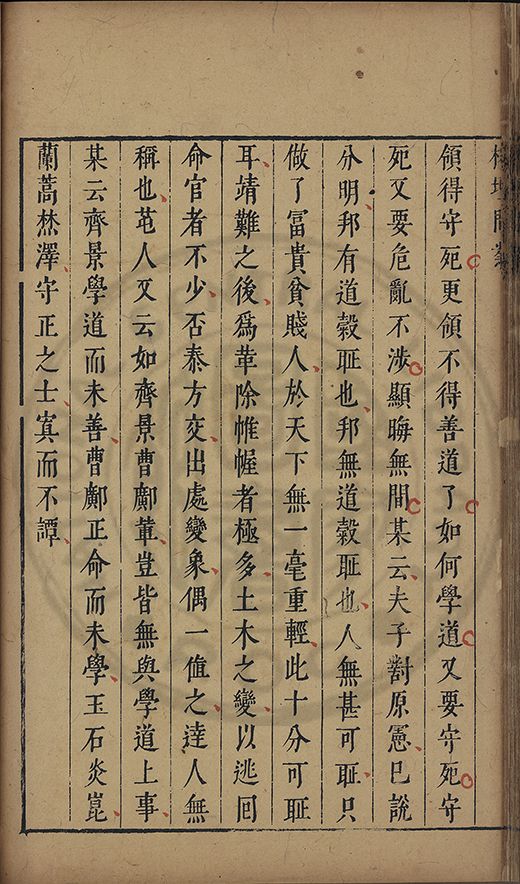 領得守死更領不得善道了如何學道又要守死守
死又要危亂不涉顯晦無間某云夫子對原憲已說
分明邦有道穀耻也邦無道穀耻也人無甚可耻只
做了富貴貧賤人於天下無一毫重輕此十分可耻
耳靖難之後爲革除帷幄者極多土木之變以逃回
命官者不少否泰方交出處變象偶一值之逹人無
稱也芚人又云如齊景曹鄺軰豈皆無與學道上事
某云齊景學道而未善曹鄺正命而未學玉石炎崑
蘭蒿焚澤守正之士寘而不譚